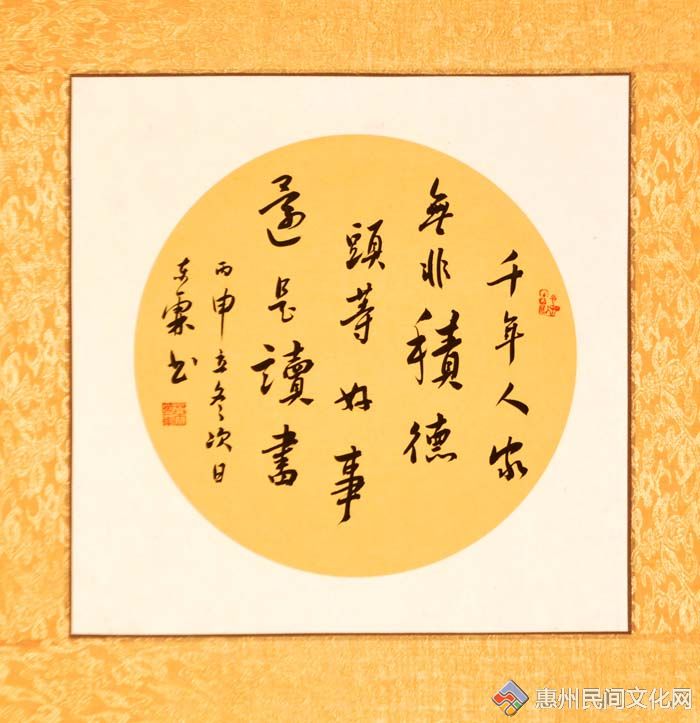 千年人家
無非積德
頭等好事
還是讀書
丙申立冬次日
东霖书
惠州民间文化网